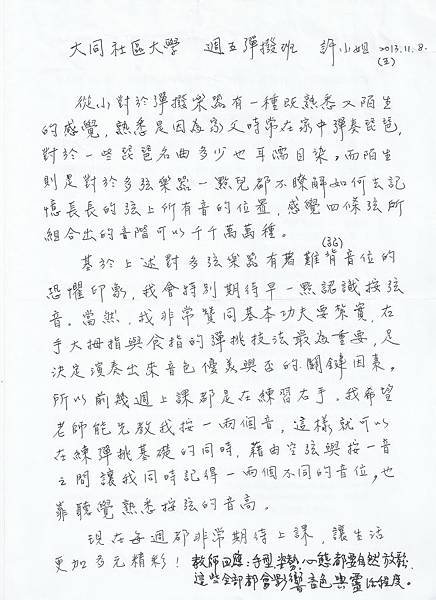 大同社區大學 週五彈撥班 許小姐 2013.11.8.
(五)
從小對於彈撥樂器有一種既熟悉又陌生
的感覺,熟悉是因為家父時常在家中彈奏琵琶,
對於一些琵琶名曲多少也耳濡目染,而陌生
則是對於多弦樂器一點兒都不瞭解如何去記
憶長長的弦上所有音的位置,感覺四條弦所
組合出的音階可以千千萬萬種。
基於上述對多弦樂器有著難背(記)音位的
恐懼印象,我會特別期待早一點認識按弦
音。當然,我非常贊同基本功夫要紮實,右
手大拇指與食指的彈挑技法最為重要,足
決定演奏出來音色優美與否的關鍵因素。
所以前幾週上課都是在練習右手,我希望
老師能先教我按一兩個音,這樣就可以
在練彈挑基礎的同時,藉由空弦與按一音
之間讓我同時記得一兩個不同的音位,也
靠聽覺熟悉按弦的音高。
現在每週都非常期待上課,讓生活
更加多元精彩!教師回應:手型、姿勢、心態都要自然放鬆,
這些全部都會影響音色與靈活程度。